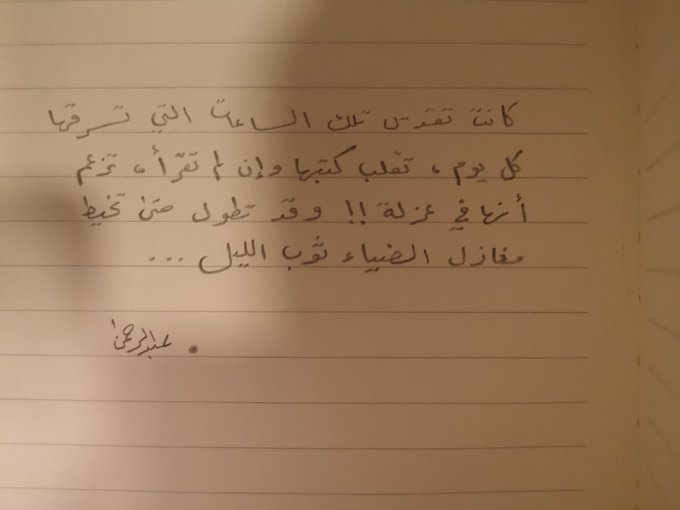 كانت تقدس تلك الساعات التي تسرقها
كل يوم، تقلب كتبها وإن لم تقرأ، تزعم
أنها في عزلة !! وقد تطول حتى تخيط
مغازل الضياء ثوب الليل ...
. عبدالرحمن